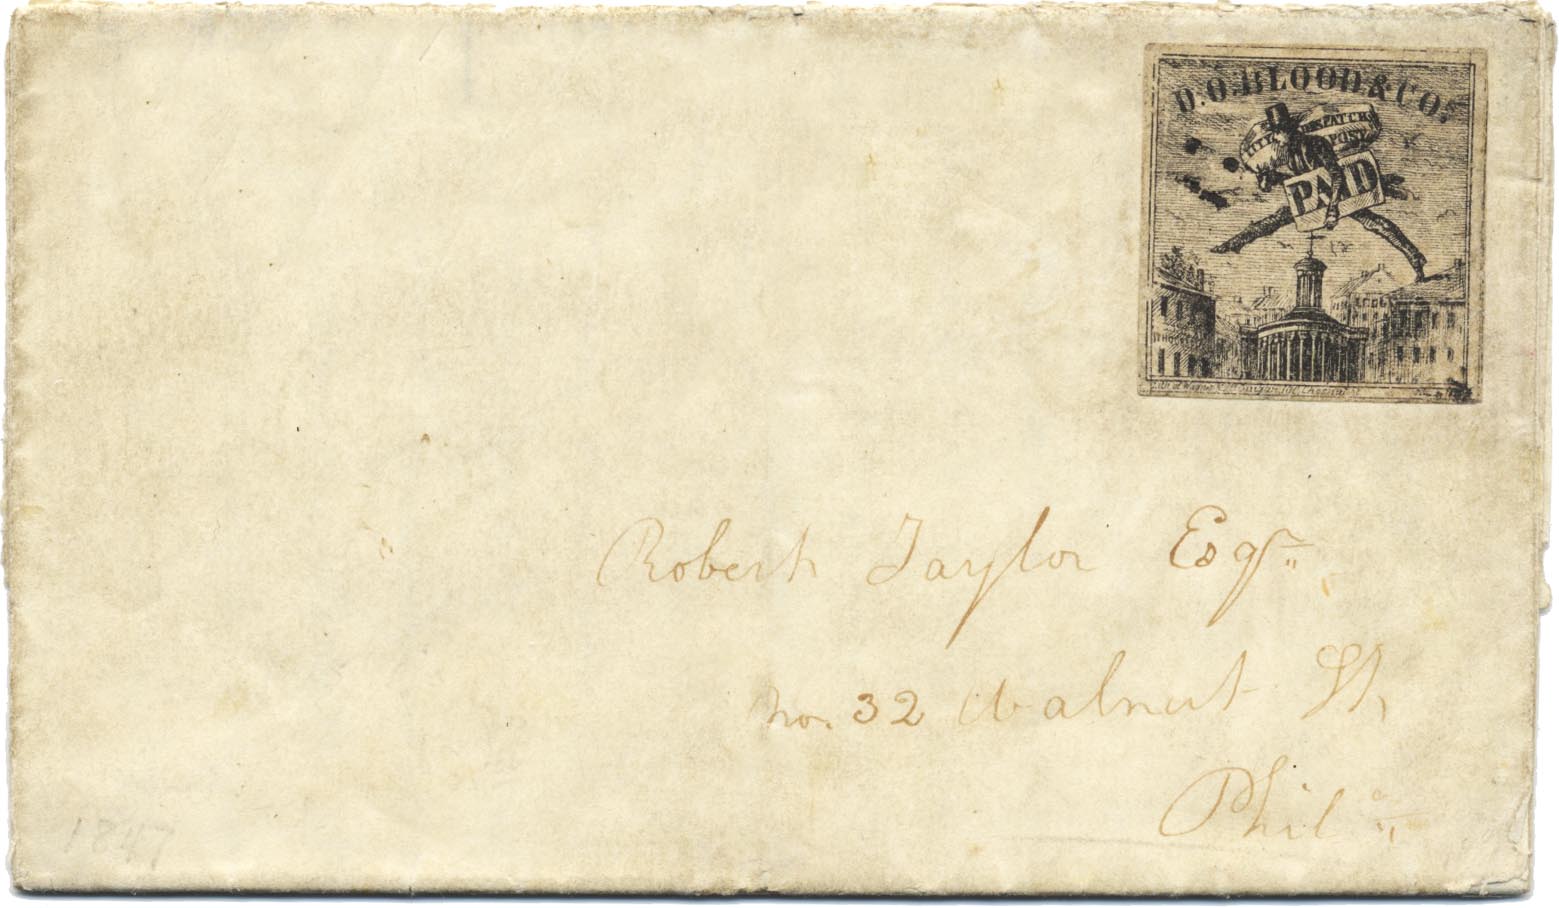 D.O. BLOOD & CO.
CITY DESPATCH
POST
PAID
Robert Taylor Esqr.
No. 32 Walnut St,
Phila
1847